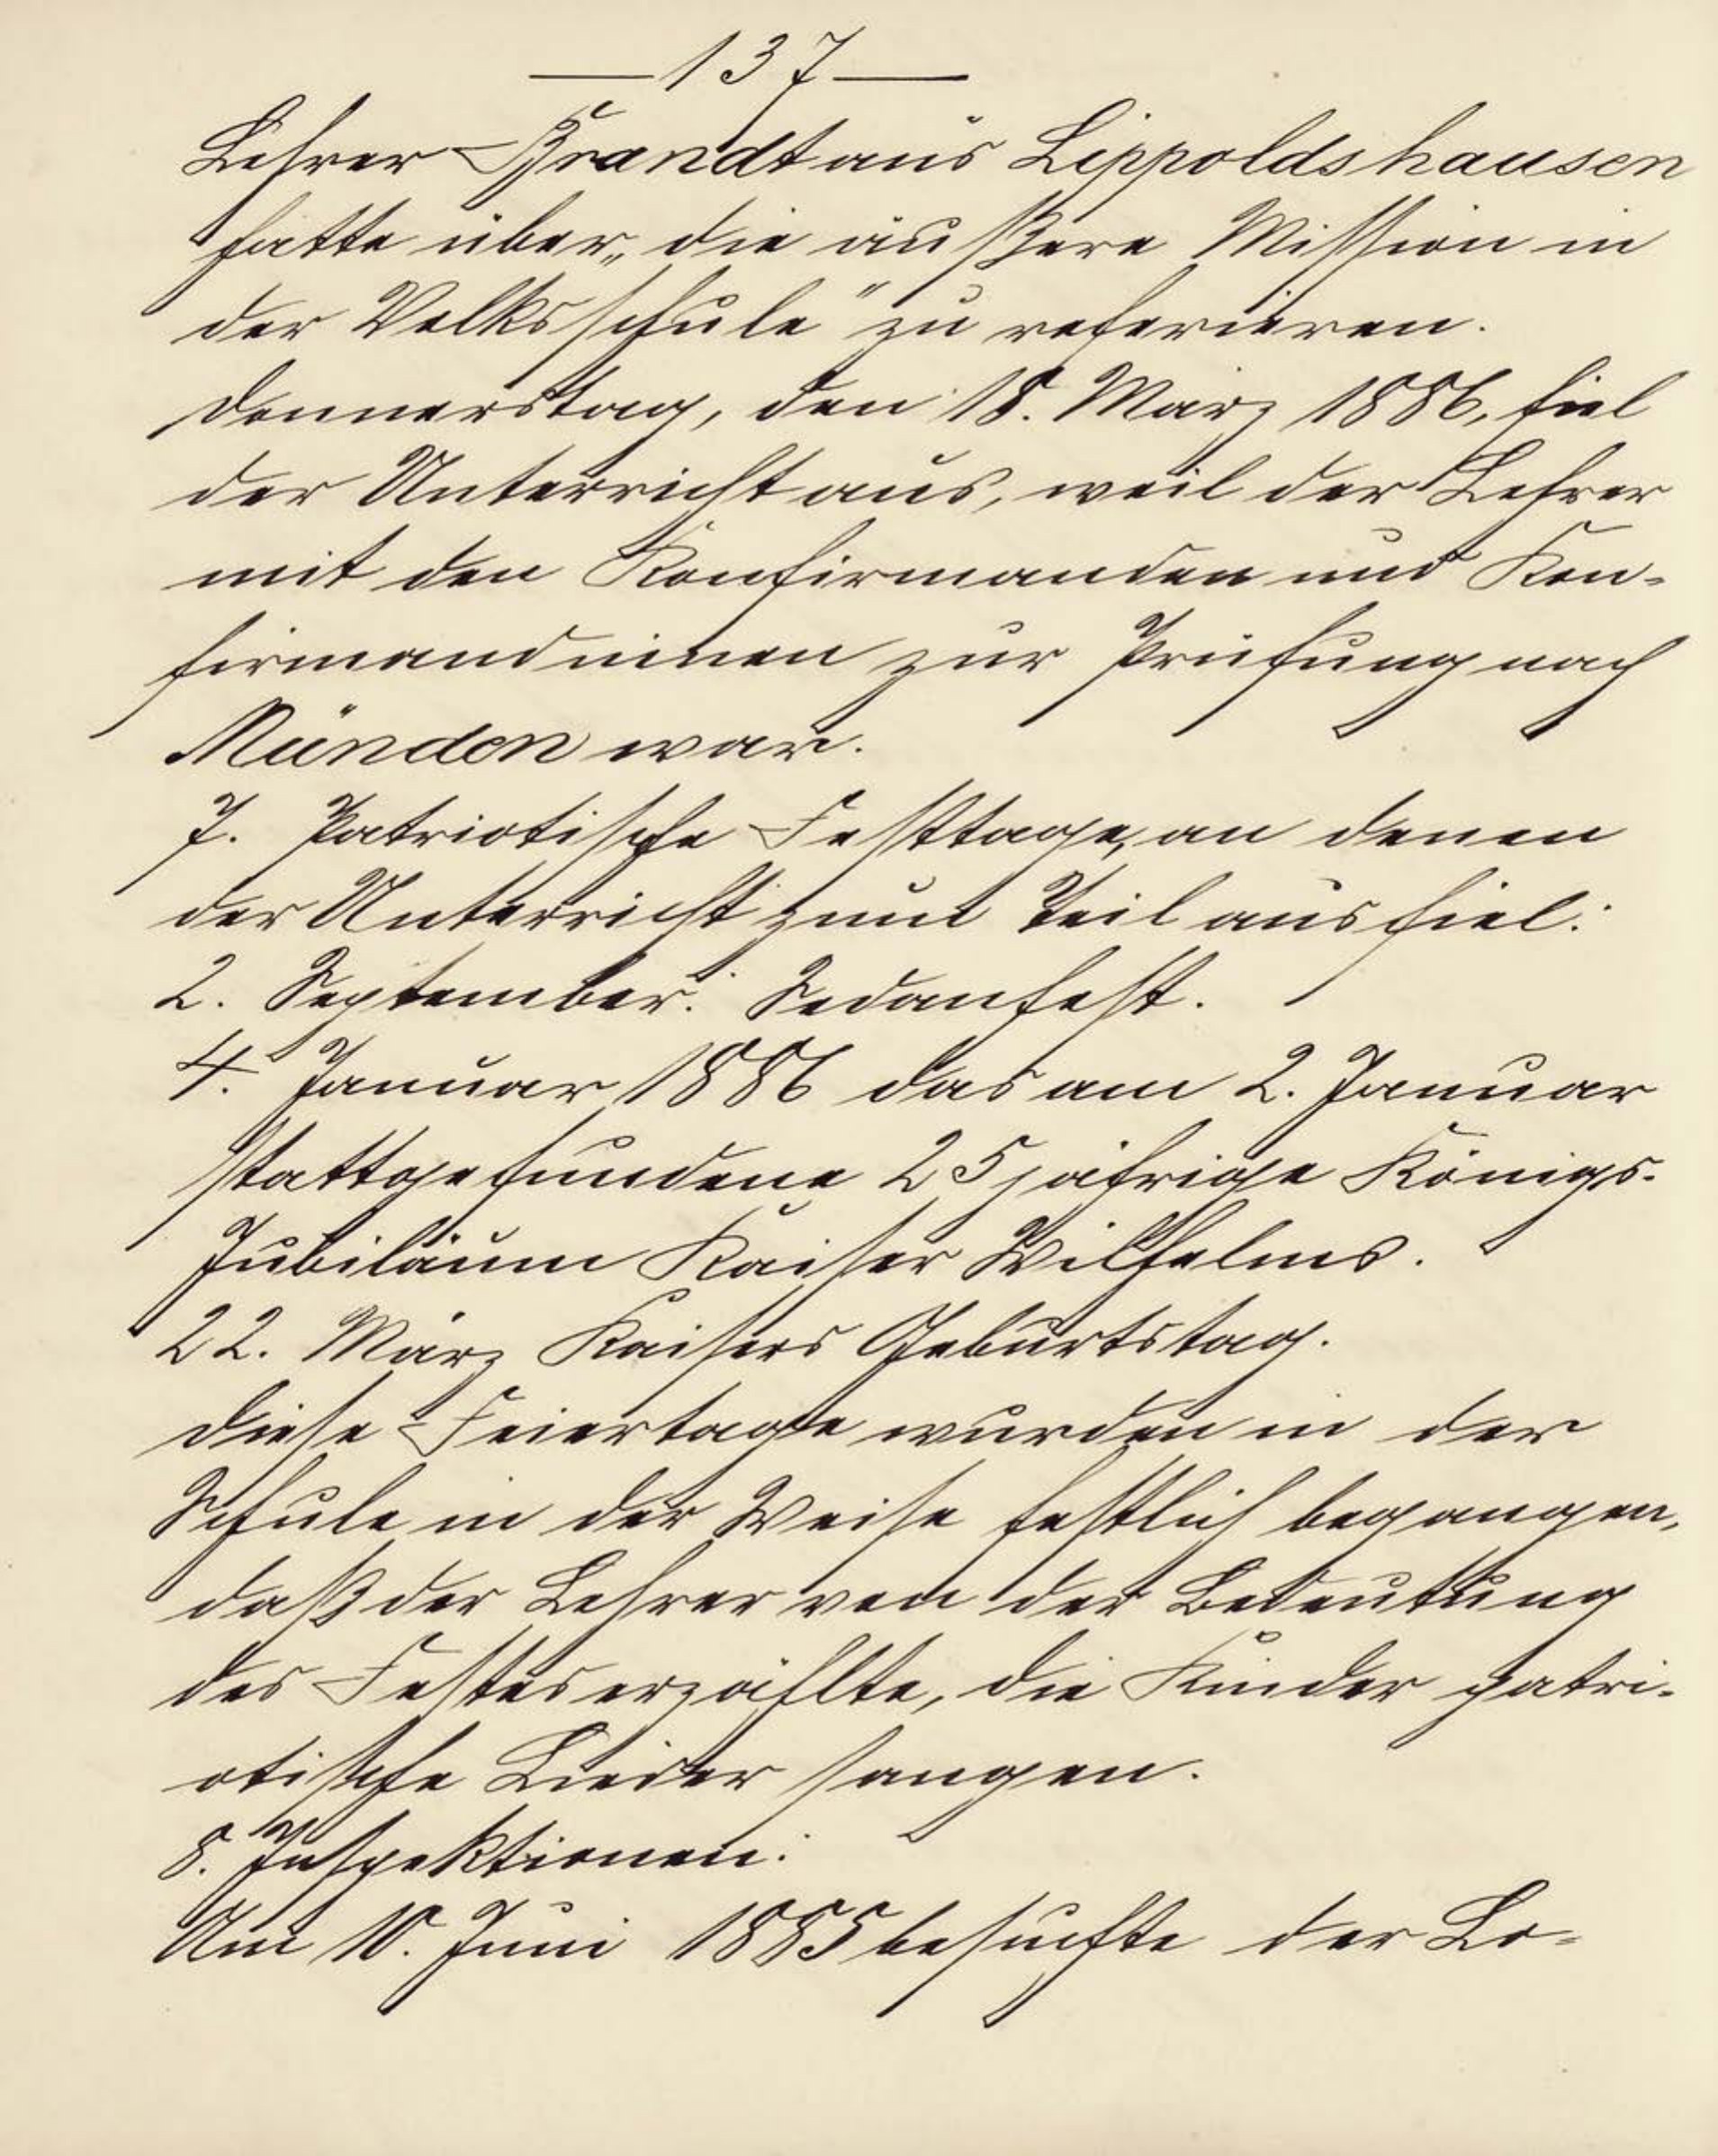 — 137 —
Lehrer Brandt aus Lippoldshausen
hatte über „die äußere Mission in
der Volksschule" zu referieren.
Donnerstag, den 18. März 1886, fiel
der Unterricht aus, weil der Lehrer
mit den Konfirmanden und Kon-
firmandninen zur Prüfung nach
Münden war.
7. Patriotische Festtage, an denen
der Unterricht zum Teil ausfiel:
2. September: Sedanfest.
4. Januar 1886 das am 2. Januar
stattgefundene 25jährige Königs-
Jubiläum Kaiser Wilhelms.
22. März Kaisers Geburtstag.
Diese Feiertage wurden in der
Schule in der Weise festlich begangen,
daß der Lehrer von der Bedeutung
des Festes erzählte, die Kinder patri-
otische Lieder sangen.
8. Inspektionen:
Am 10. Juni 1885 besuchte der Lo-